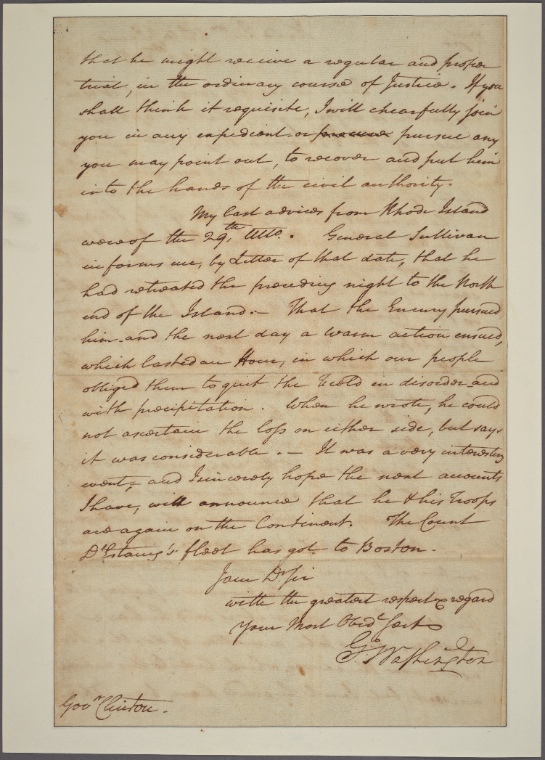 that he might receive a regular and proper
trial, in the ordinary course of Justice. If you
shall think it requisite, I will chearfully join
you in any expedient or pursue any
you may point out, to recover and put him
into the hands of the civil authority.
My last advices from Rhode Island
were of the 29th Ulto. General Sullivan
informs me, by Letter of that date, that he
had retreated the preceeding night to the North
end of the Island.— That the Enemy pursued
him and the next day a warm action ensued,
which lasted an Hour, in which our people
obliged them to quit the Field in disorder and
with precipitation. When he wrote, he could
not ascertain the loss on either side, but says
it was considerable.— It was a very interesting
event, and I sincerely hope the next accounts
I have, will announce that he & his Troops
are again on the Continent. The Count
D'Estaing's fleet has got to Boston.
I am Dr Sir
with the greatest respect & regard
Your Most Obed Servt
Go Washington
Govr Clinton.